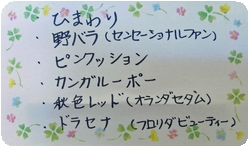 ひまわり
・野バラ(センセーショナルファン)
・ピンクッション
・カンガルーポー
・秋色レッド(オランダセダム)
・ドラセナ (フロリダビューティー)